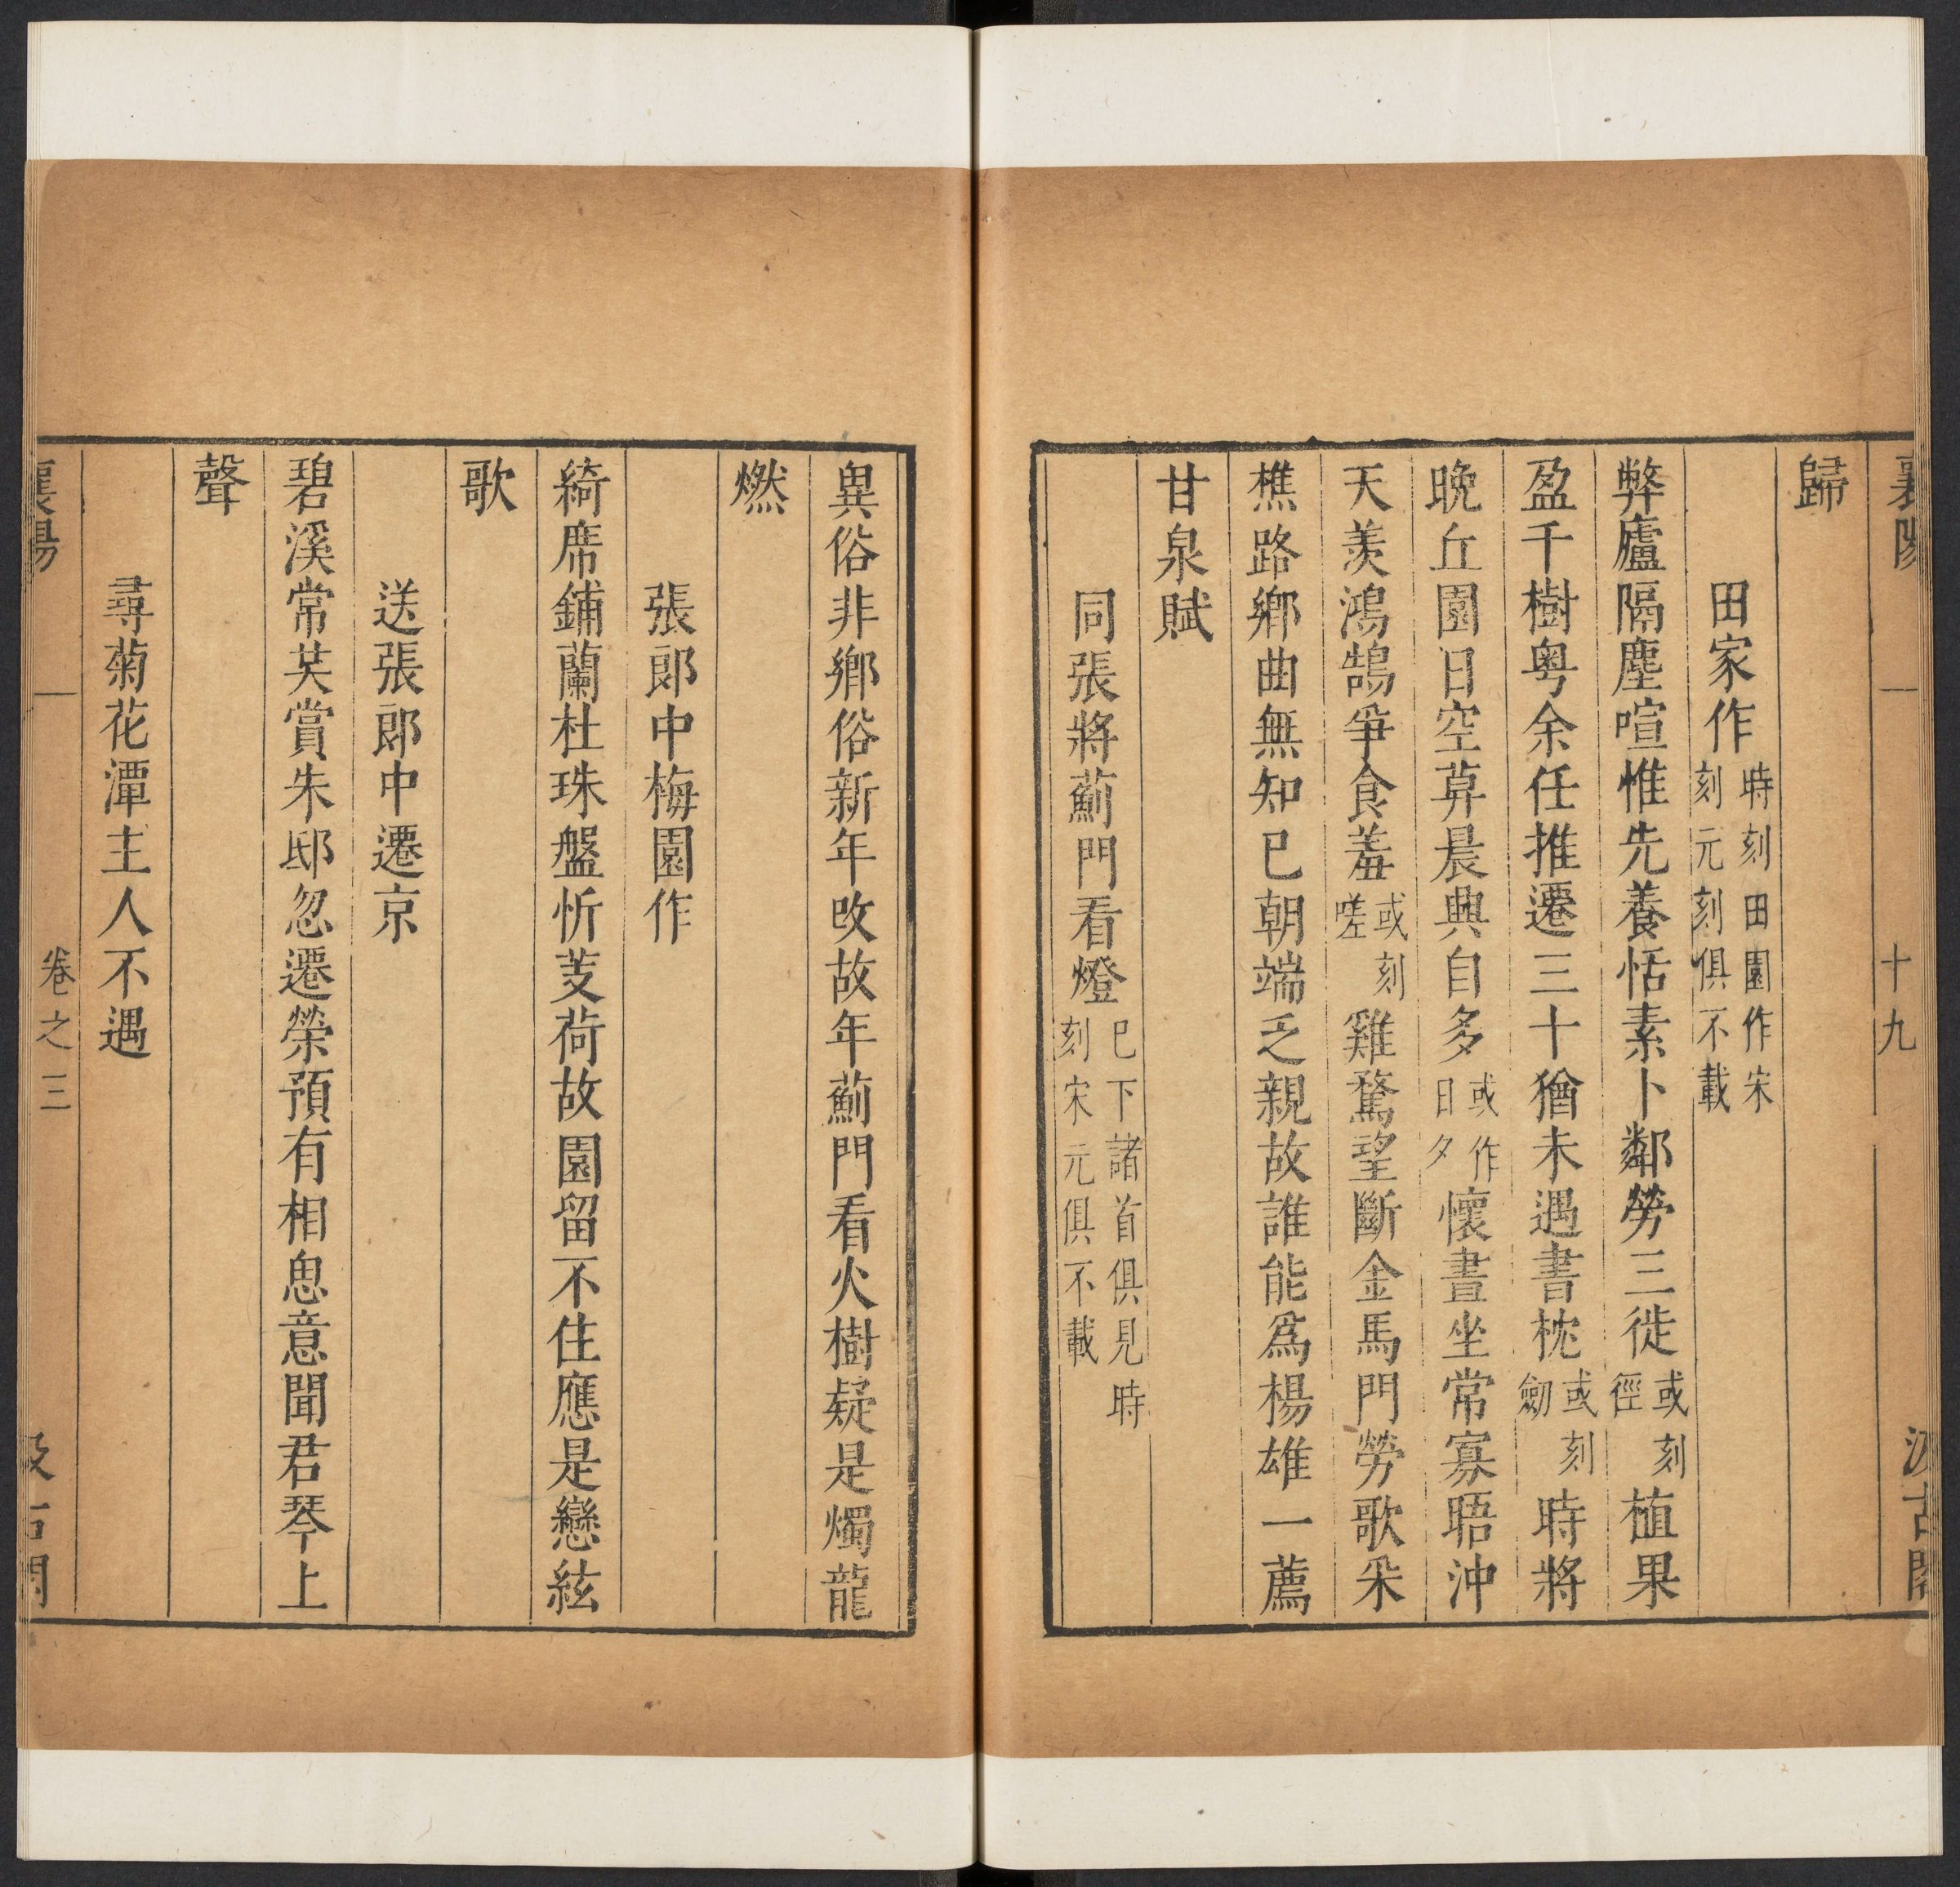 襄陽 十九 汲古閣
歸
田家作 時刻田園作宋刻元刻俱不載
弊廬隔塵喧惟先養恬素卜鄰勞三徙 或刻徑 植果
盈千樹粵余任推遷三十猶未遇書枕 或刻劒 時將
晚丘園日空暮晨興自多 或作日夕 懷晝坐常寡晤沖
天羨鴻鵠爭食羞 或刻嗟 雞鶩望斷金馬門勞歌采
樵路鄉曲無知已朝端乏親故誰能爲楊雄一薦
甘泉賦
同張將薊門看燈 已下諸首俱見時刻宋元俱不載
異俗非鄉俗新年改故年薊門看火樹疑是燭龍
燃
張郎中梅園作
綺席鋪蘭杜珠盤忻芰荷故園留不住應是戀絃
歌
送張郎中遷京
碧溪常共賞朱邸忽遷榮預有相思意聞君琴上
聲
尋菊花潭主人不遇
襄陽 卷之三 汲古閣